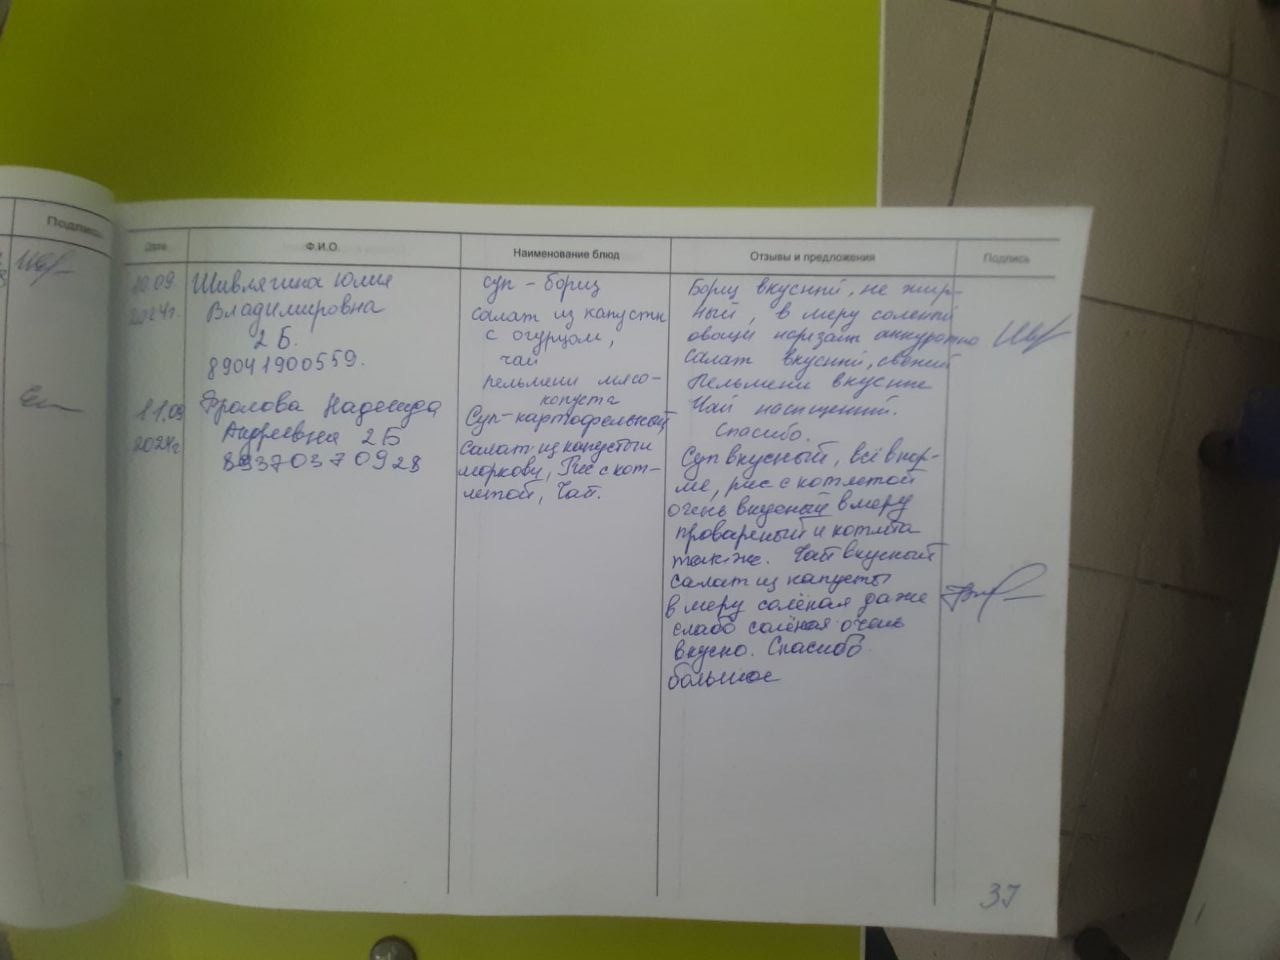 Подпись
Дата
Ф.И.О.
Наименование блюд
Отзывы и предложения
Подпись
10.09.
2024г.
Шивлягина Юлия
Владимировна
2 Б.
89041900559.
суп - борщ
салат из капусты
с огурцом,
чай
пельмени мясо-
капуста
Борщ вкусный, не жир-
ный, в меру соленый
овощи нарезаны аккуратно
Салат вкусный, свежий
Пельмени вкусные
Чай насыщенный.
Спасибо.
11.09
2024г
Фролова Надежда
Андреевна 2Б
89370370928
Суп-картофельный
Салат из капусты и
моркови, Рис с кот-
летой, Чай.
Суп вкусный, всё в нор-
ме, рис с котлетой
очень вкусный в меру
провареный и котлета
также. Чай вкусный
салат из капусты
в меру солёная даже
слабо солёная очень
вкусно. Спасибо
большое
37